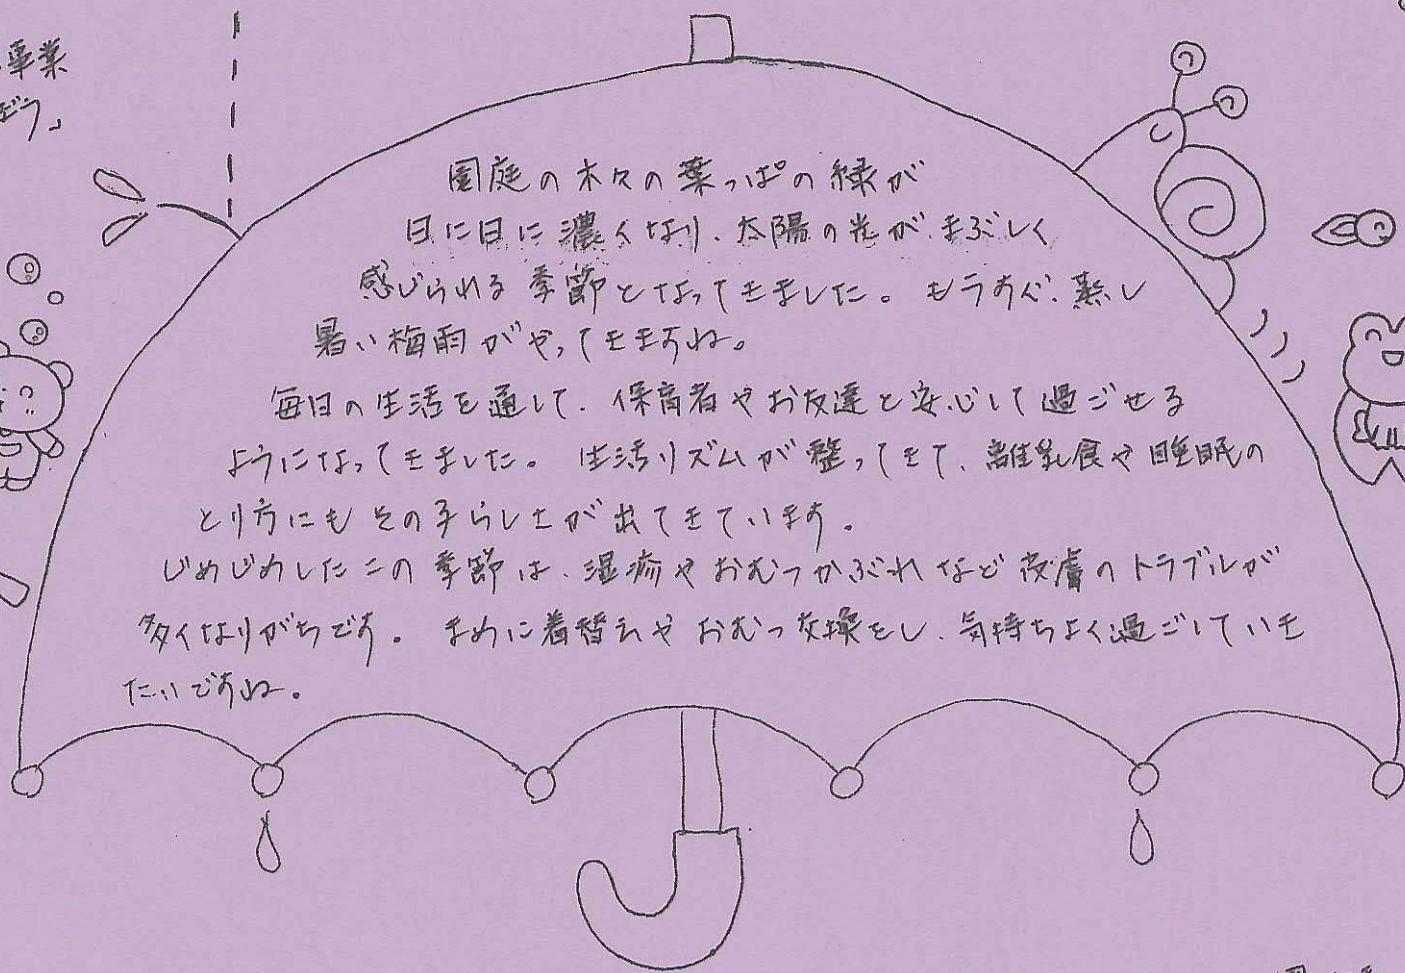 事業
ぼう」
園庭の木々の葉っぱの緑が
日に日に濃くなり、太陽の光がまぶしく
感じられる季節となってきました。もうすぐ、蒸し
暑い梅雨がやってきますね。
毎日の生活を通して、保育者やお友達と安心して過ごせる
ようになってきました。生活リズムが整ってきて、離乳食や睡眠の
とり方にもその子らしさが出てきています。
じめじめしたこの季節は、湿疹やおむつかぶれなど皮膚のトラブルが
多くなりがちです。まめに着替えやおむつ交換をし、気持ちよく過ごしていき
たいですね。